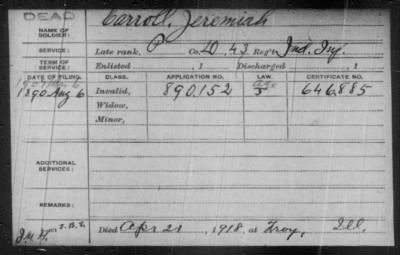 DEAD
NAME OF SOLDIER: Carroll, Jeremiah
SERVICE: Late rank, P Co. D, 43 Reg't Ind. Inf.
TERM OF SERVICE: Enlisted , 1 Discharged , 1
DATE OF FILING. CLASS. APPLICATION NO. LAW. CERTIFICATE NO.
1890 Aug 6 Invalid, 890.152 646.885
Widow,
Minor,
ADDITIONAL SERVICES:
REMARKS:
Died Apr 21, 1918, at Troy, Ill.